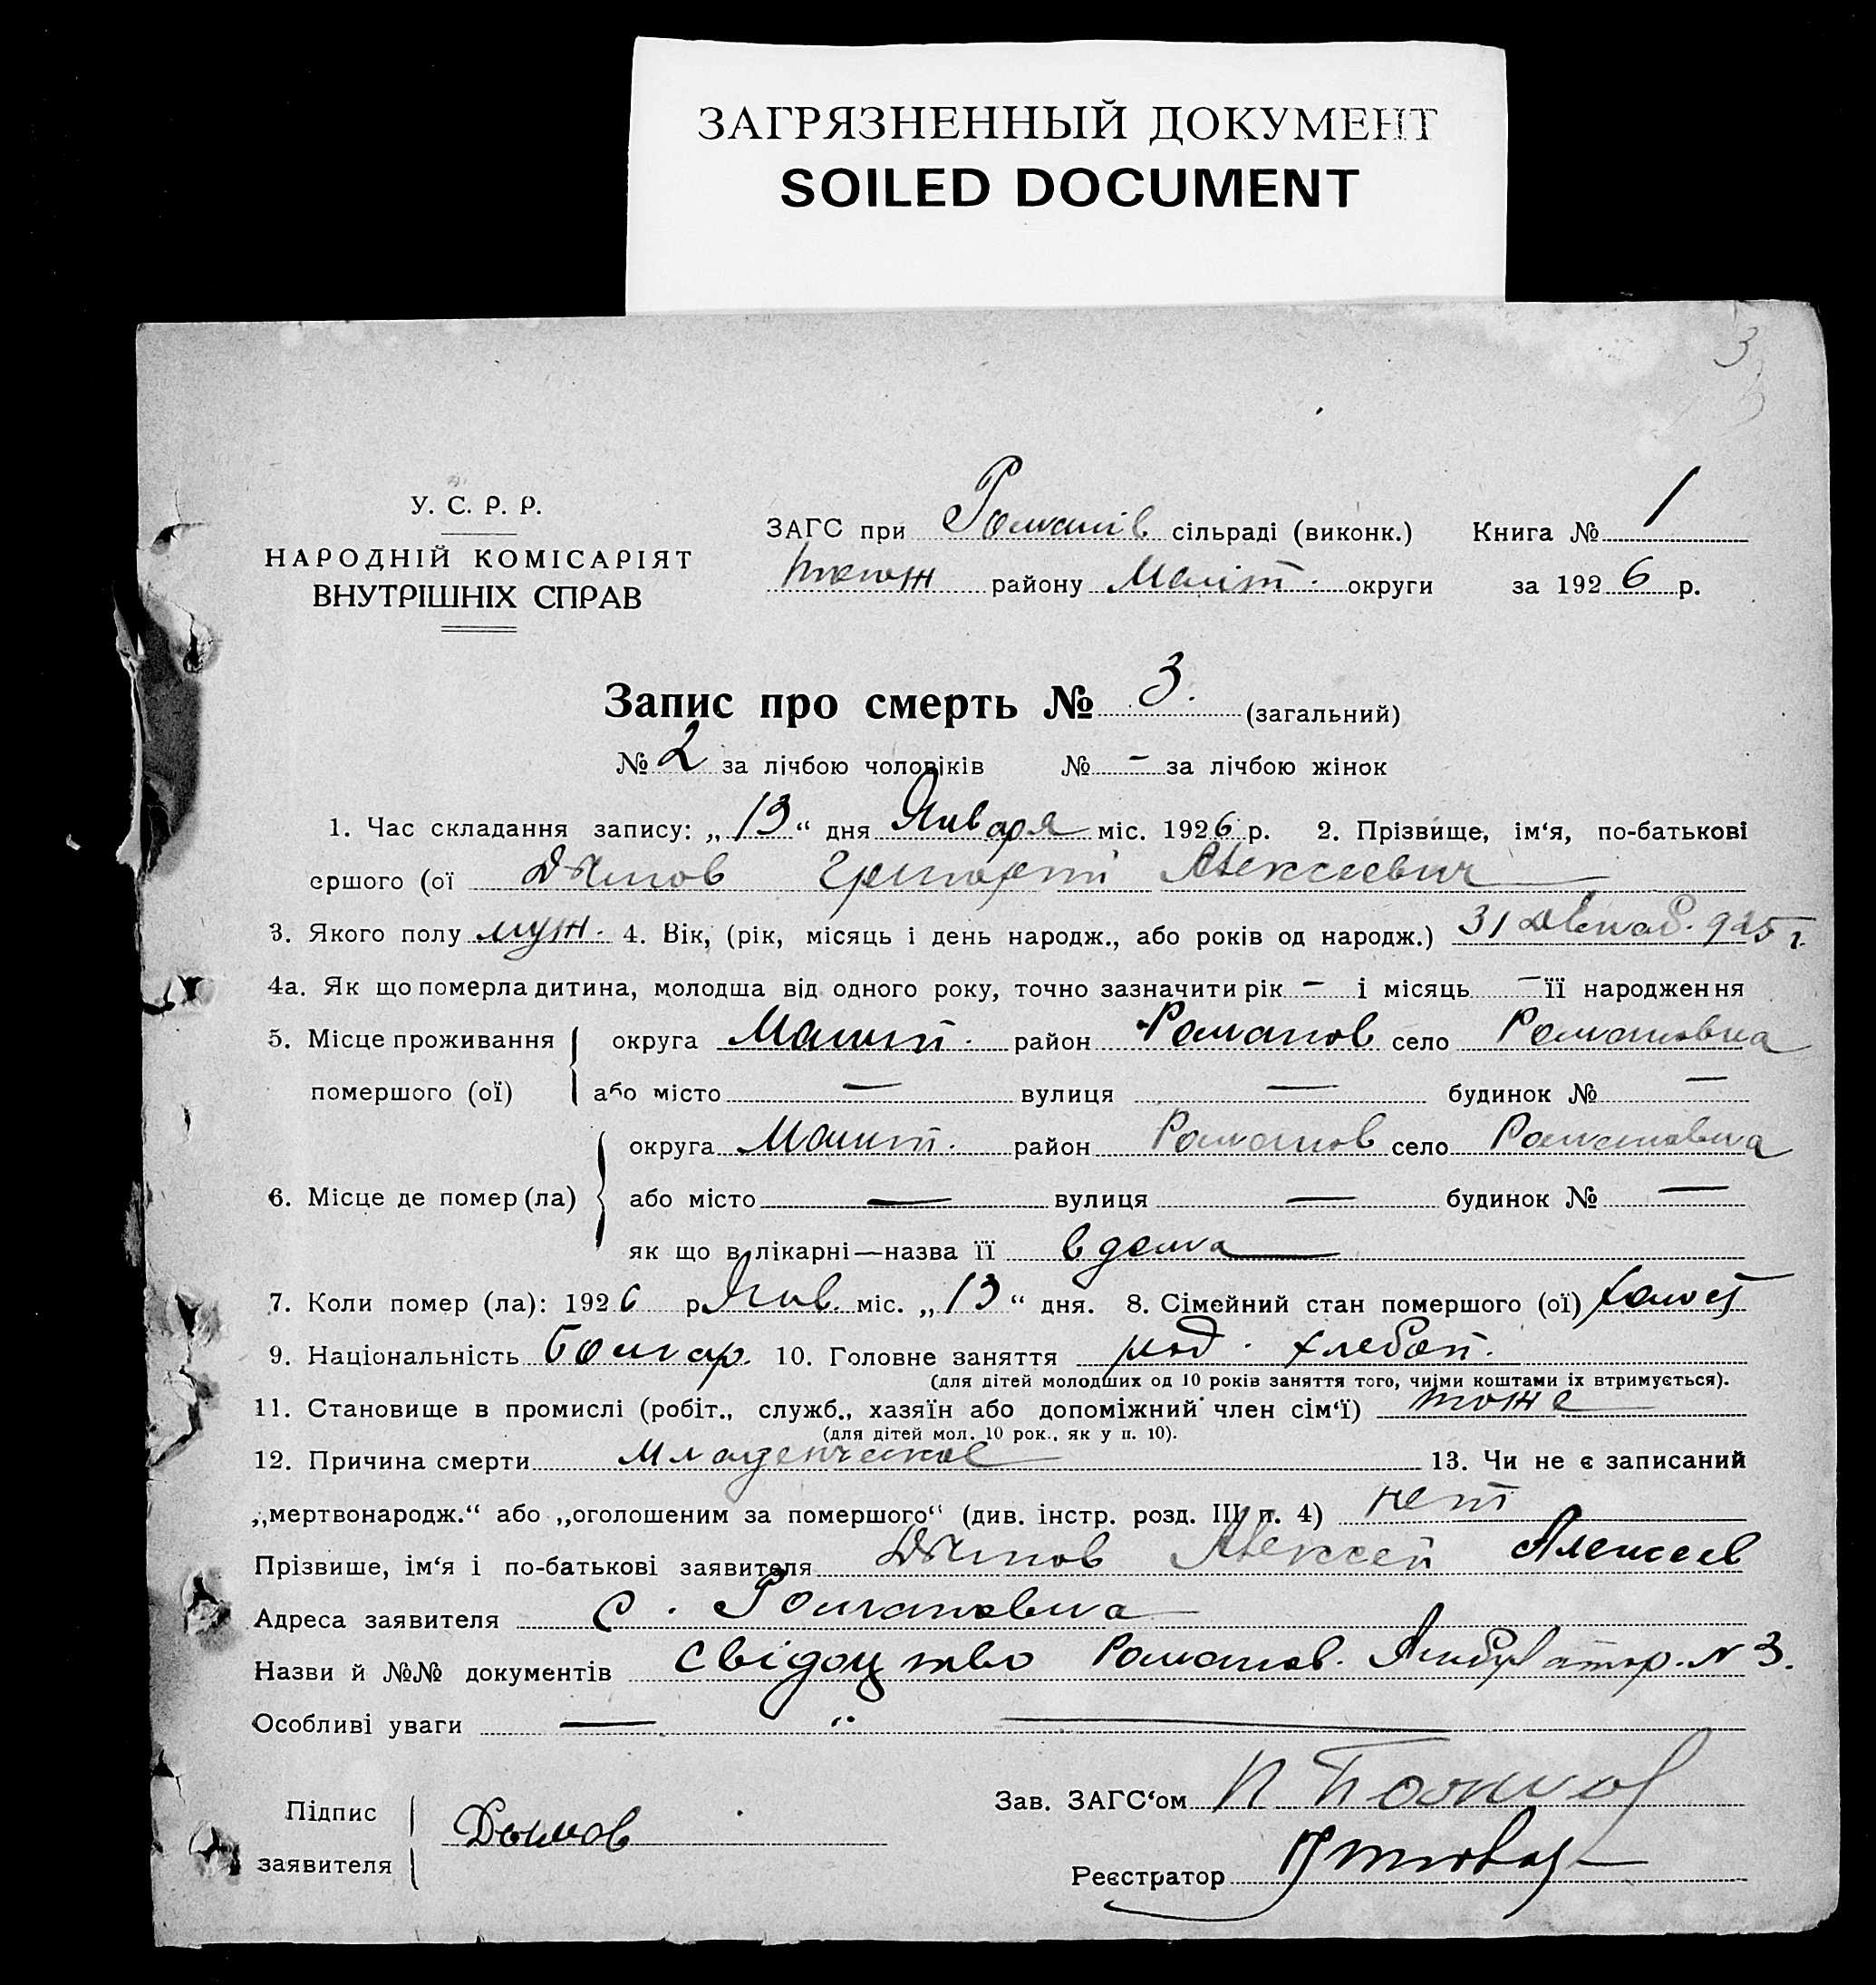 ЗАГРЯЗНЕННЫЙ ДОКУМЕНТ
SOILED DOCUMENT
3
У. С. Р. Р.
НАРОДНІЙ КОМІСАРІЯТ
ВНУТРІШНІХ СПРАВ
ЗАГС при Романів сільраді (виконк.) Книга № 1
району Меліт. округи за 1926 р.
Запис про смерть № 3. (загальний)
№ 2 за лічбою чоловіків № — за лічбою жінок
1. Час складання запису: „13“ дня Января міс. 1926 р. 2. Прізвище, ім‘я, по-батькові
ершого (ої Григорій Алексеевич
3. Якого полу муж. 4. Вік, (рік, місяць і день народж., або років од народж.) 31 Декаб. 925 г.
4а. Як що померла дитина, молодша від одного року, точно зазначити рік — і місяць — її народження
5. Місце проживання округа Мелит. район Романов село Романовка
помершого (ої) або місто — вулиця — будинок № —
округа Мелит. район Романов село Романовка
6. Місце де помер (ла) або місто — вулиця — будинок № —
як що в лікарні—назва її в дома
7. Коли помер (ла): 1926 р. Янв. міс. „13“ дня. 8. Сімейний стан помершого (ої) холост
9. Національність Болгар. 10. Головне заняття род. хлебоп.
(для дітей молодших од 10 років заняття того, чиїми коштами їх втримується).
11. Становище в промислі (робіт., служб., хазяїн або допоміжний член сім‘ї) тоже
(для дітей мол. 10 рок., як у п. 10).
12. Причина смерти Младенческое 13. Чи не є записаний
„мертвонародж.“ або „оголошеним за помершого“ (див. інстр. розд. III п. 4) нет
Прізвише, ім‘я і по-батькові заявителя Алексей Алексеев
Адреса заявителя с. Романовка
Назви й №№ документів Свідоцтво Романов. Амбулатор. № 3.
Особливі уваги —
Підпис
заявителя
Зав. ЗАГС‘ом
Реєстратор